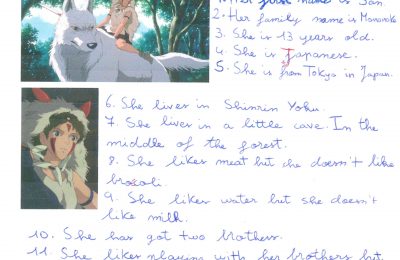 1. Her first name is San.
2. Her family name is Mononoke
3. She is 13 years old.
4. She is Japanese.
5. She is from Tokyo in Japan.
6. She lives in Shinrin Yoku.
7. She lives in a little cave. In the
middle of the forest.
8. She likes meat but she doesn't like
brocoli.
9. She likes water but she doesn't
like milk.
10. She has got two brothers.
11. She likes playing with her brothers but